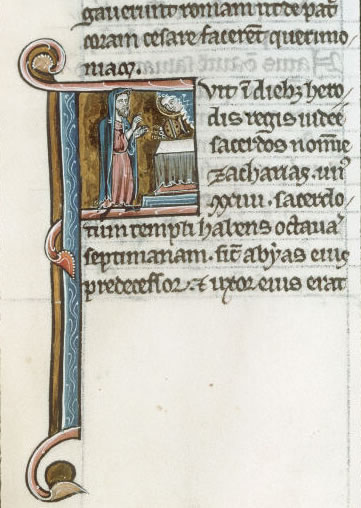 gauerunt romam ut de pat̃
coram cesare facerent querimo/
niaꝫ.
FVit ĩ diebꝫ hero/
dis regis iudee
sacerdos nomĩe
zacharias. uñ
xxiiii. sacerdo/
tum templi habens octauã
septimanam. sic̃ abyas eiꝰ
predecessor. ⁊ uxor eius erat